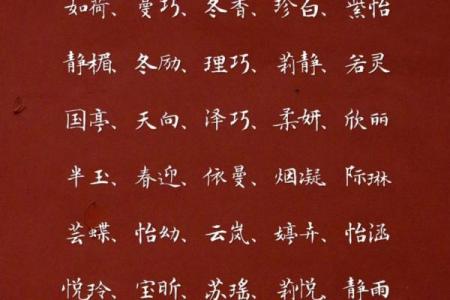 如荷、曼巧、冬香、珍白、紫怡
静楣、冬励、理巧、莉静、若灵
国亭、天向、泽巧、柔妍、欣丽
半玉、春迎、依曼、烟凝 际琳
芸蝶、怡幼、云岚、婷卉、怡涵
悦玲、宝昕、苏瑶、莉悦、静雨